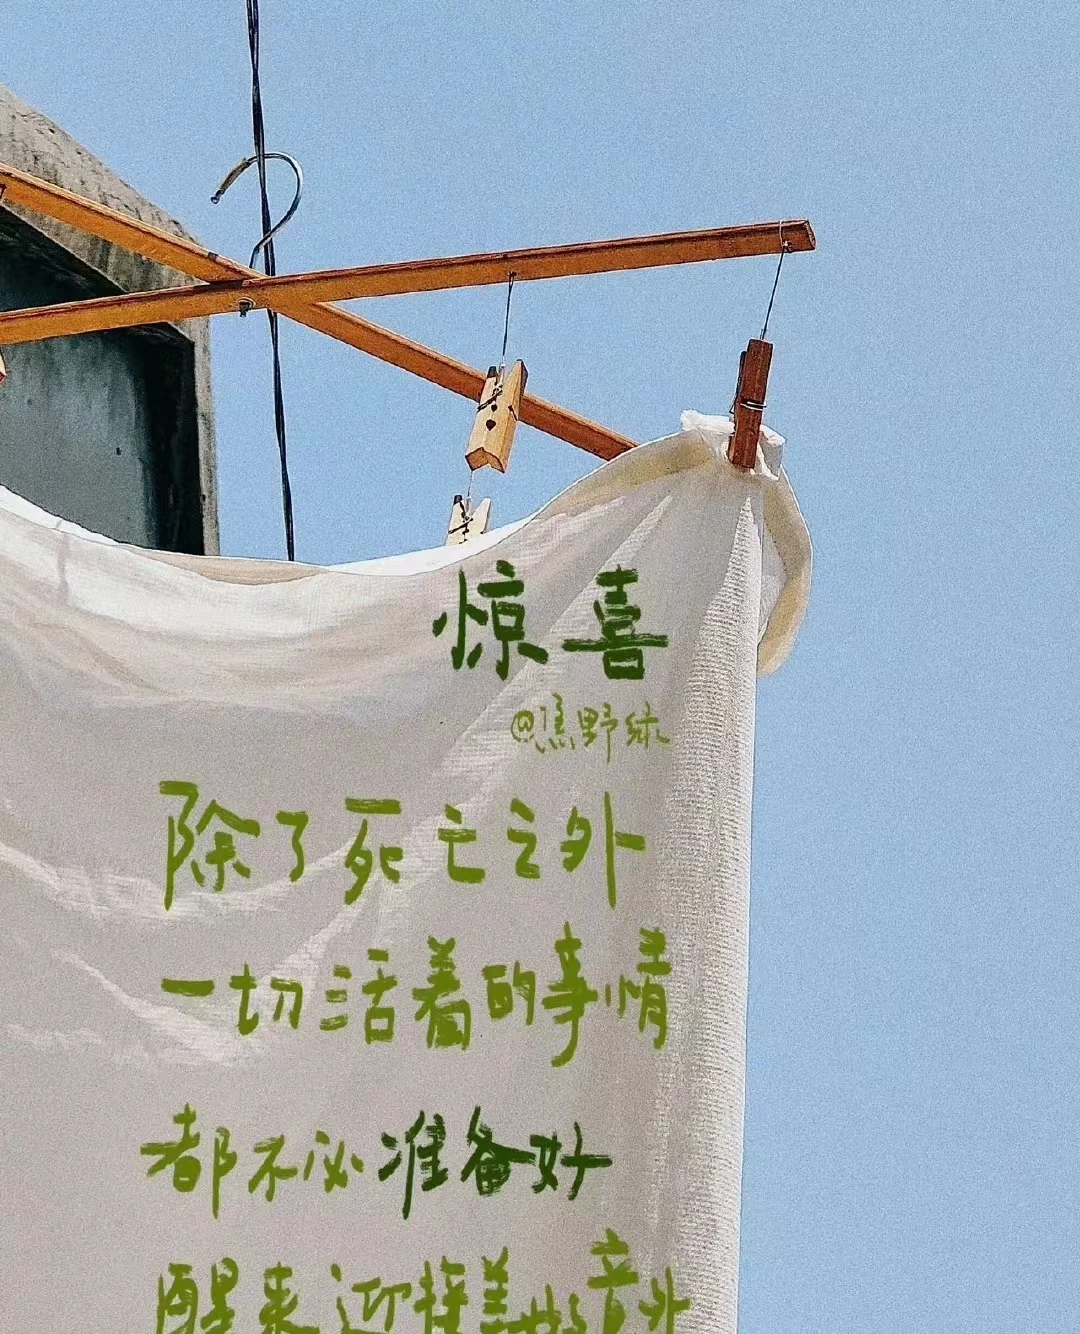 惊喜
@焦野绿
除了死亡之外
一切活着的事情
都不必准备好
醒来迎接美好意外